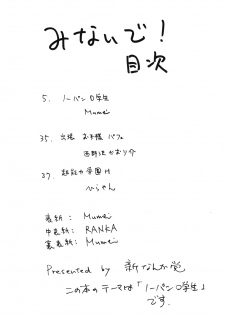 みないで!
目次
5. ノーパン○学生
Mumei
35. 出張 お子様 パフェ
37. 超能力学園H
べらやん
表紙: Mumei
中表紙: RANKA
裏表紙: Mumei
Presented by 新なんか党
この本のテーマは「ノーパン○学生」
です.